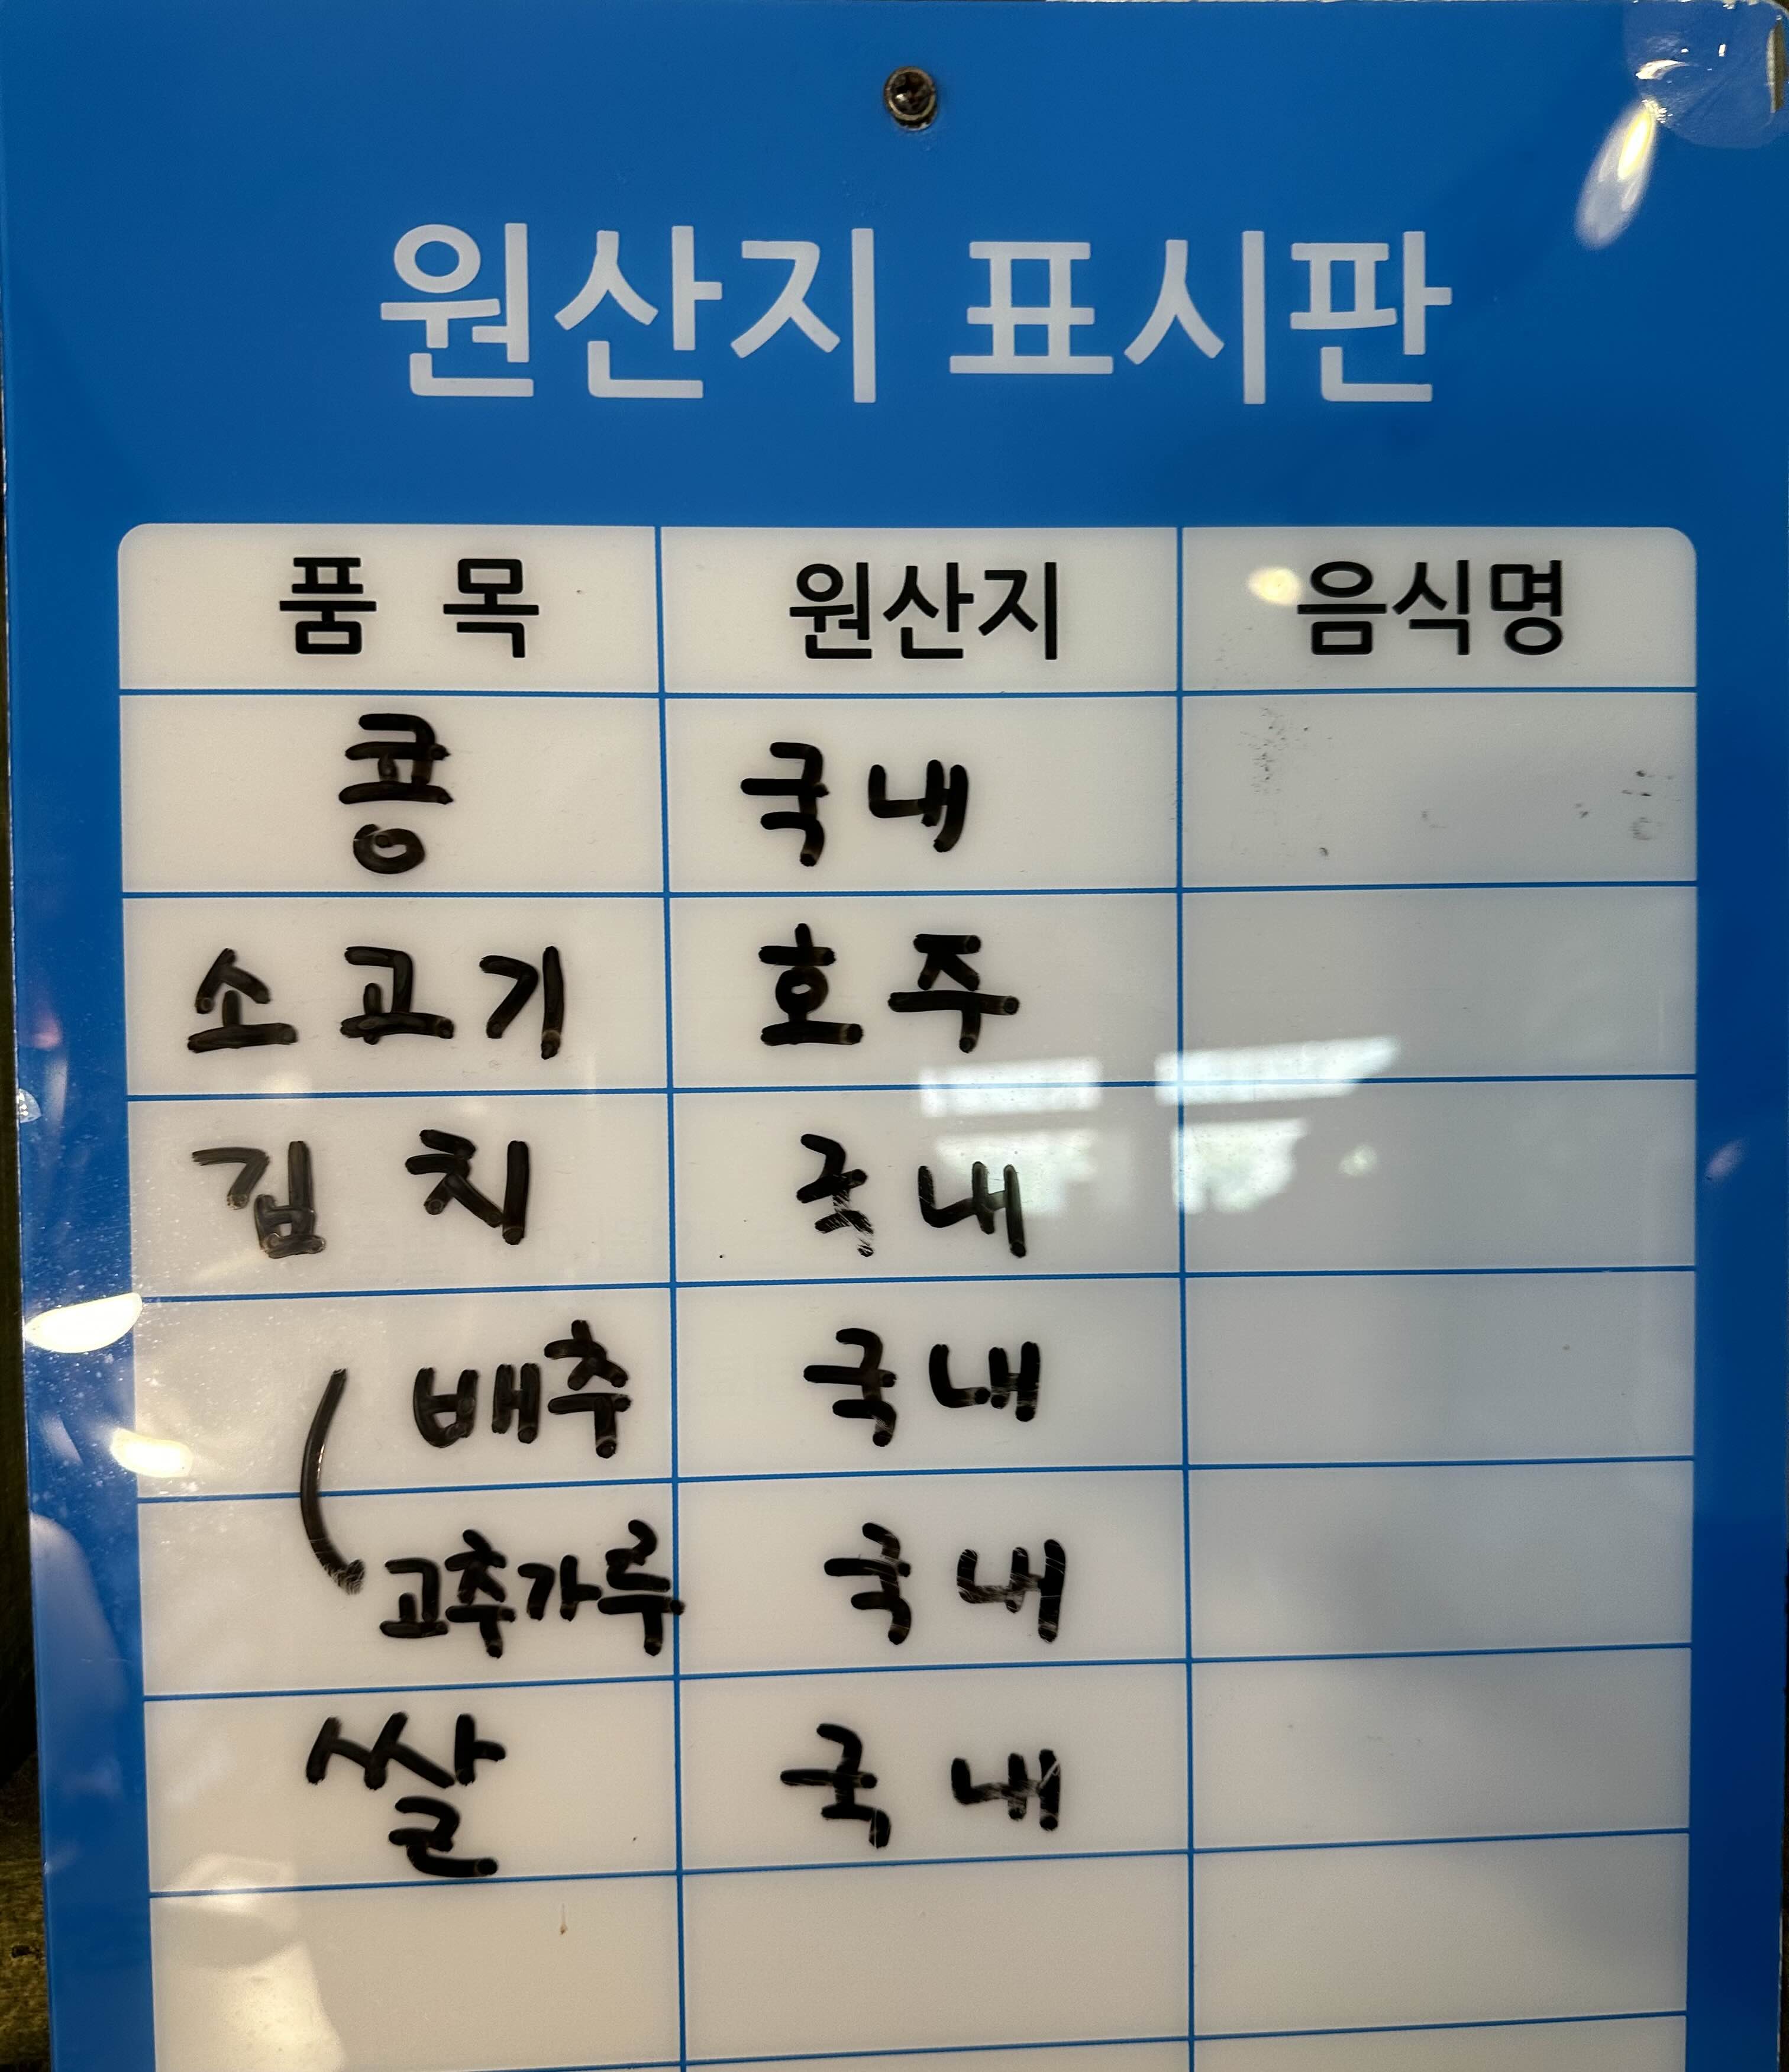 원산지 표시판
품 목 원산지 음식명
콩 국내
소고기 호주
김치 국내
배추 국내
고추가루 국내
쌀 국내